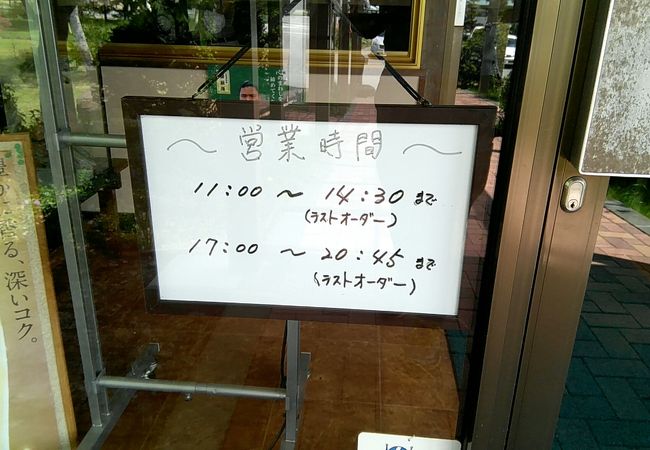 〜 営業時間 〜
11:00 〜 14:30 まで
(ラストオーダー)
17:00 〜 20:45 まで
(ラストオーダー)
る、深いコク。